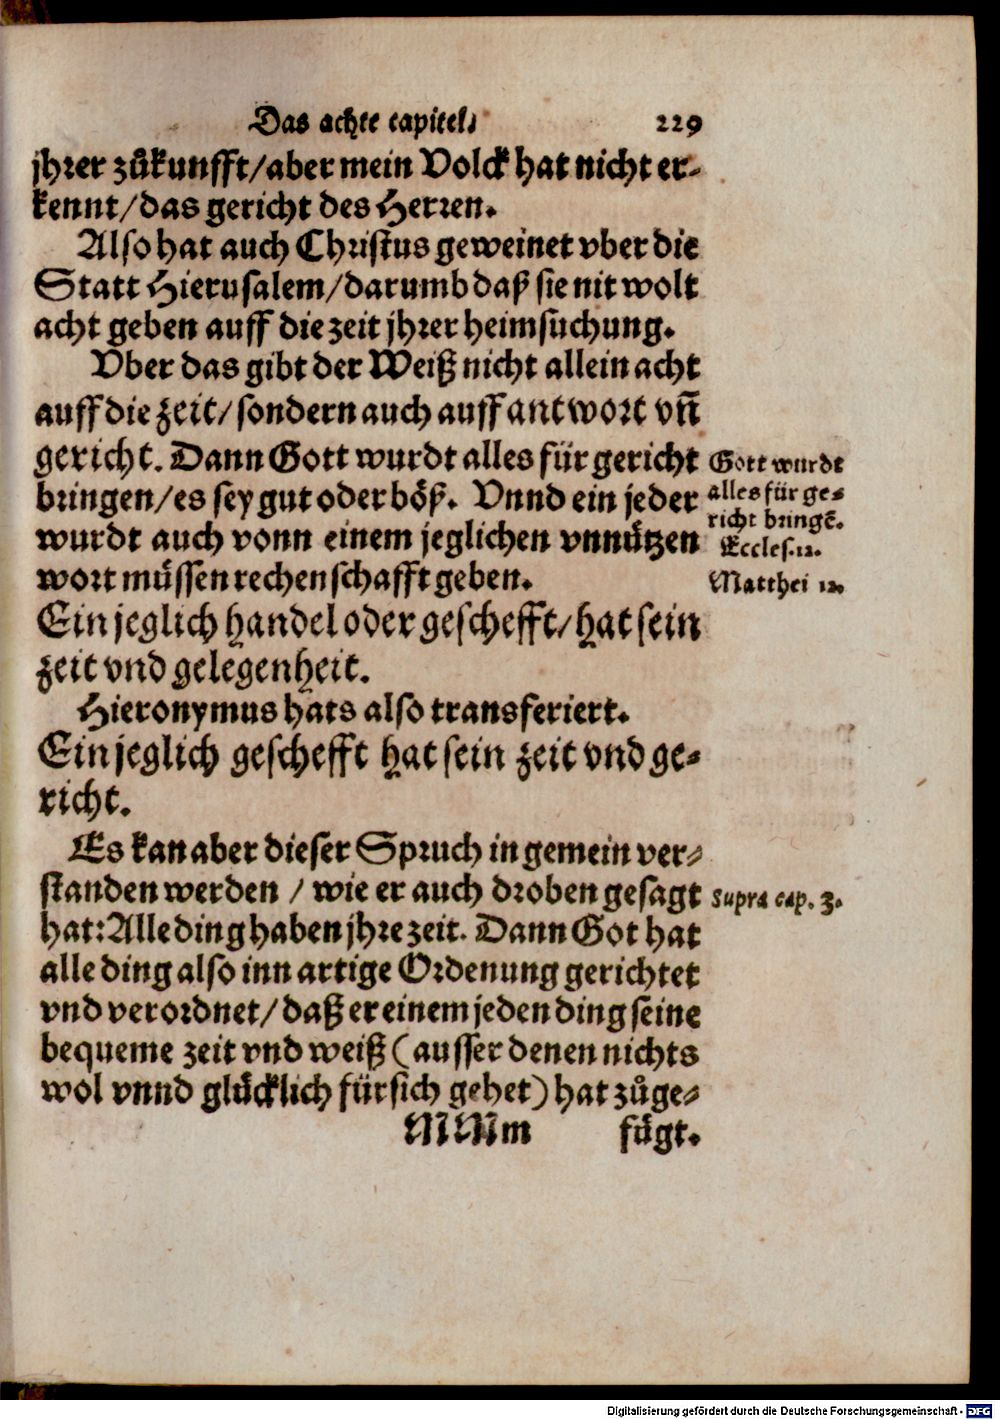 Das achte capitel. 229
jhrer zůkunfft/aber mein Volck hat nicht er-
kennt/das gericht des Herren.
Also hat auch Christus geweinet vber die
Statt Hierusalem/darumb daß sie nit wolt
acht geben auff die zeit jhrer heimsůchung.
Vber das gibt der Weiß nicht allein acht
auff die zeit/sondern auch auff antwort vñ
gericht. Dann Gott wurdt alles für gericht
bringen/es sey gut oder böß. Vnnd ein jeder
wurdt auch vonn einem jeglichen vnnützen
wort müssen rechenschafft geben.
Gott wurdt
alles für ge-
richt bringẽ.
Eccles.12.
Matthei 12.
Ein jeglich handel oder geschefft/hat sein
zeit vnd gelegenheit.
Hieronymus hats also transferiert.
Ein jeglich geschefft hat sein zeit vnd ge-
richt.
Es kan aber dieser Spruch in gemein ver-
standen werden / wie er auch droben gesagt
hat: Alle ding haben jhre zeit. Dann Got hat
alle ding also inn artige Ordenung gerichtet
vnd verordnet/daß er einem jeden ding seine
bequeme zeit vnd weiß (ausser denen nichts
wol vnnd glücklich für sich gehet) hat zůge-
Supra cap. 3.
MMm fügt.
Digitalisierung gefördert durch die Deutsche Forschungsgemeinschaft - DFG